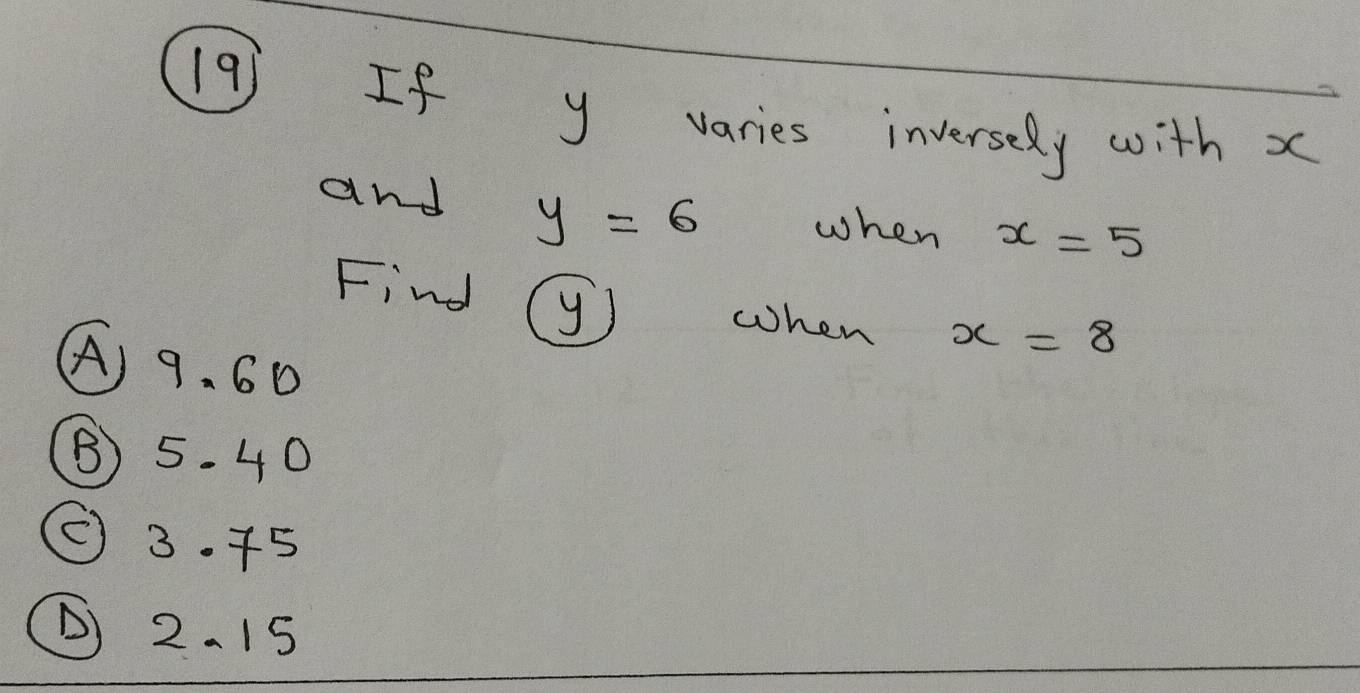 19 If y varies inversely with x
and y = 6 when x = 5
Find y when x = 8
A 9.60
B 5.40
C 3.75
D 2.15